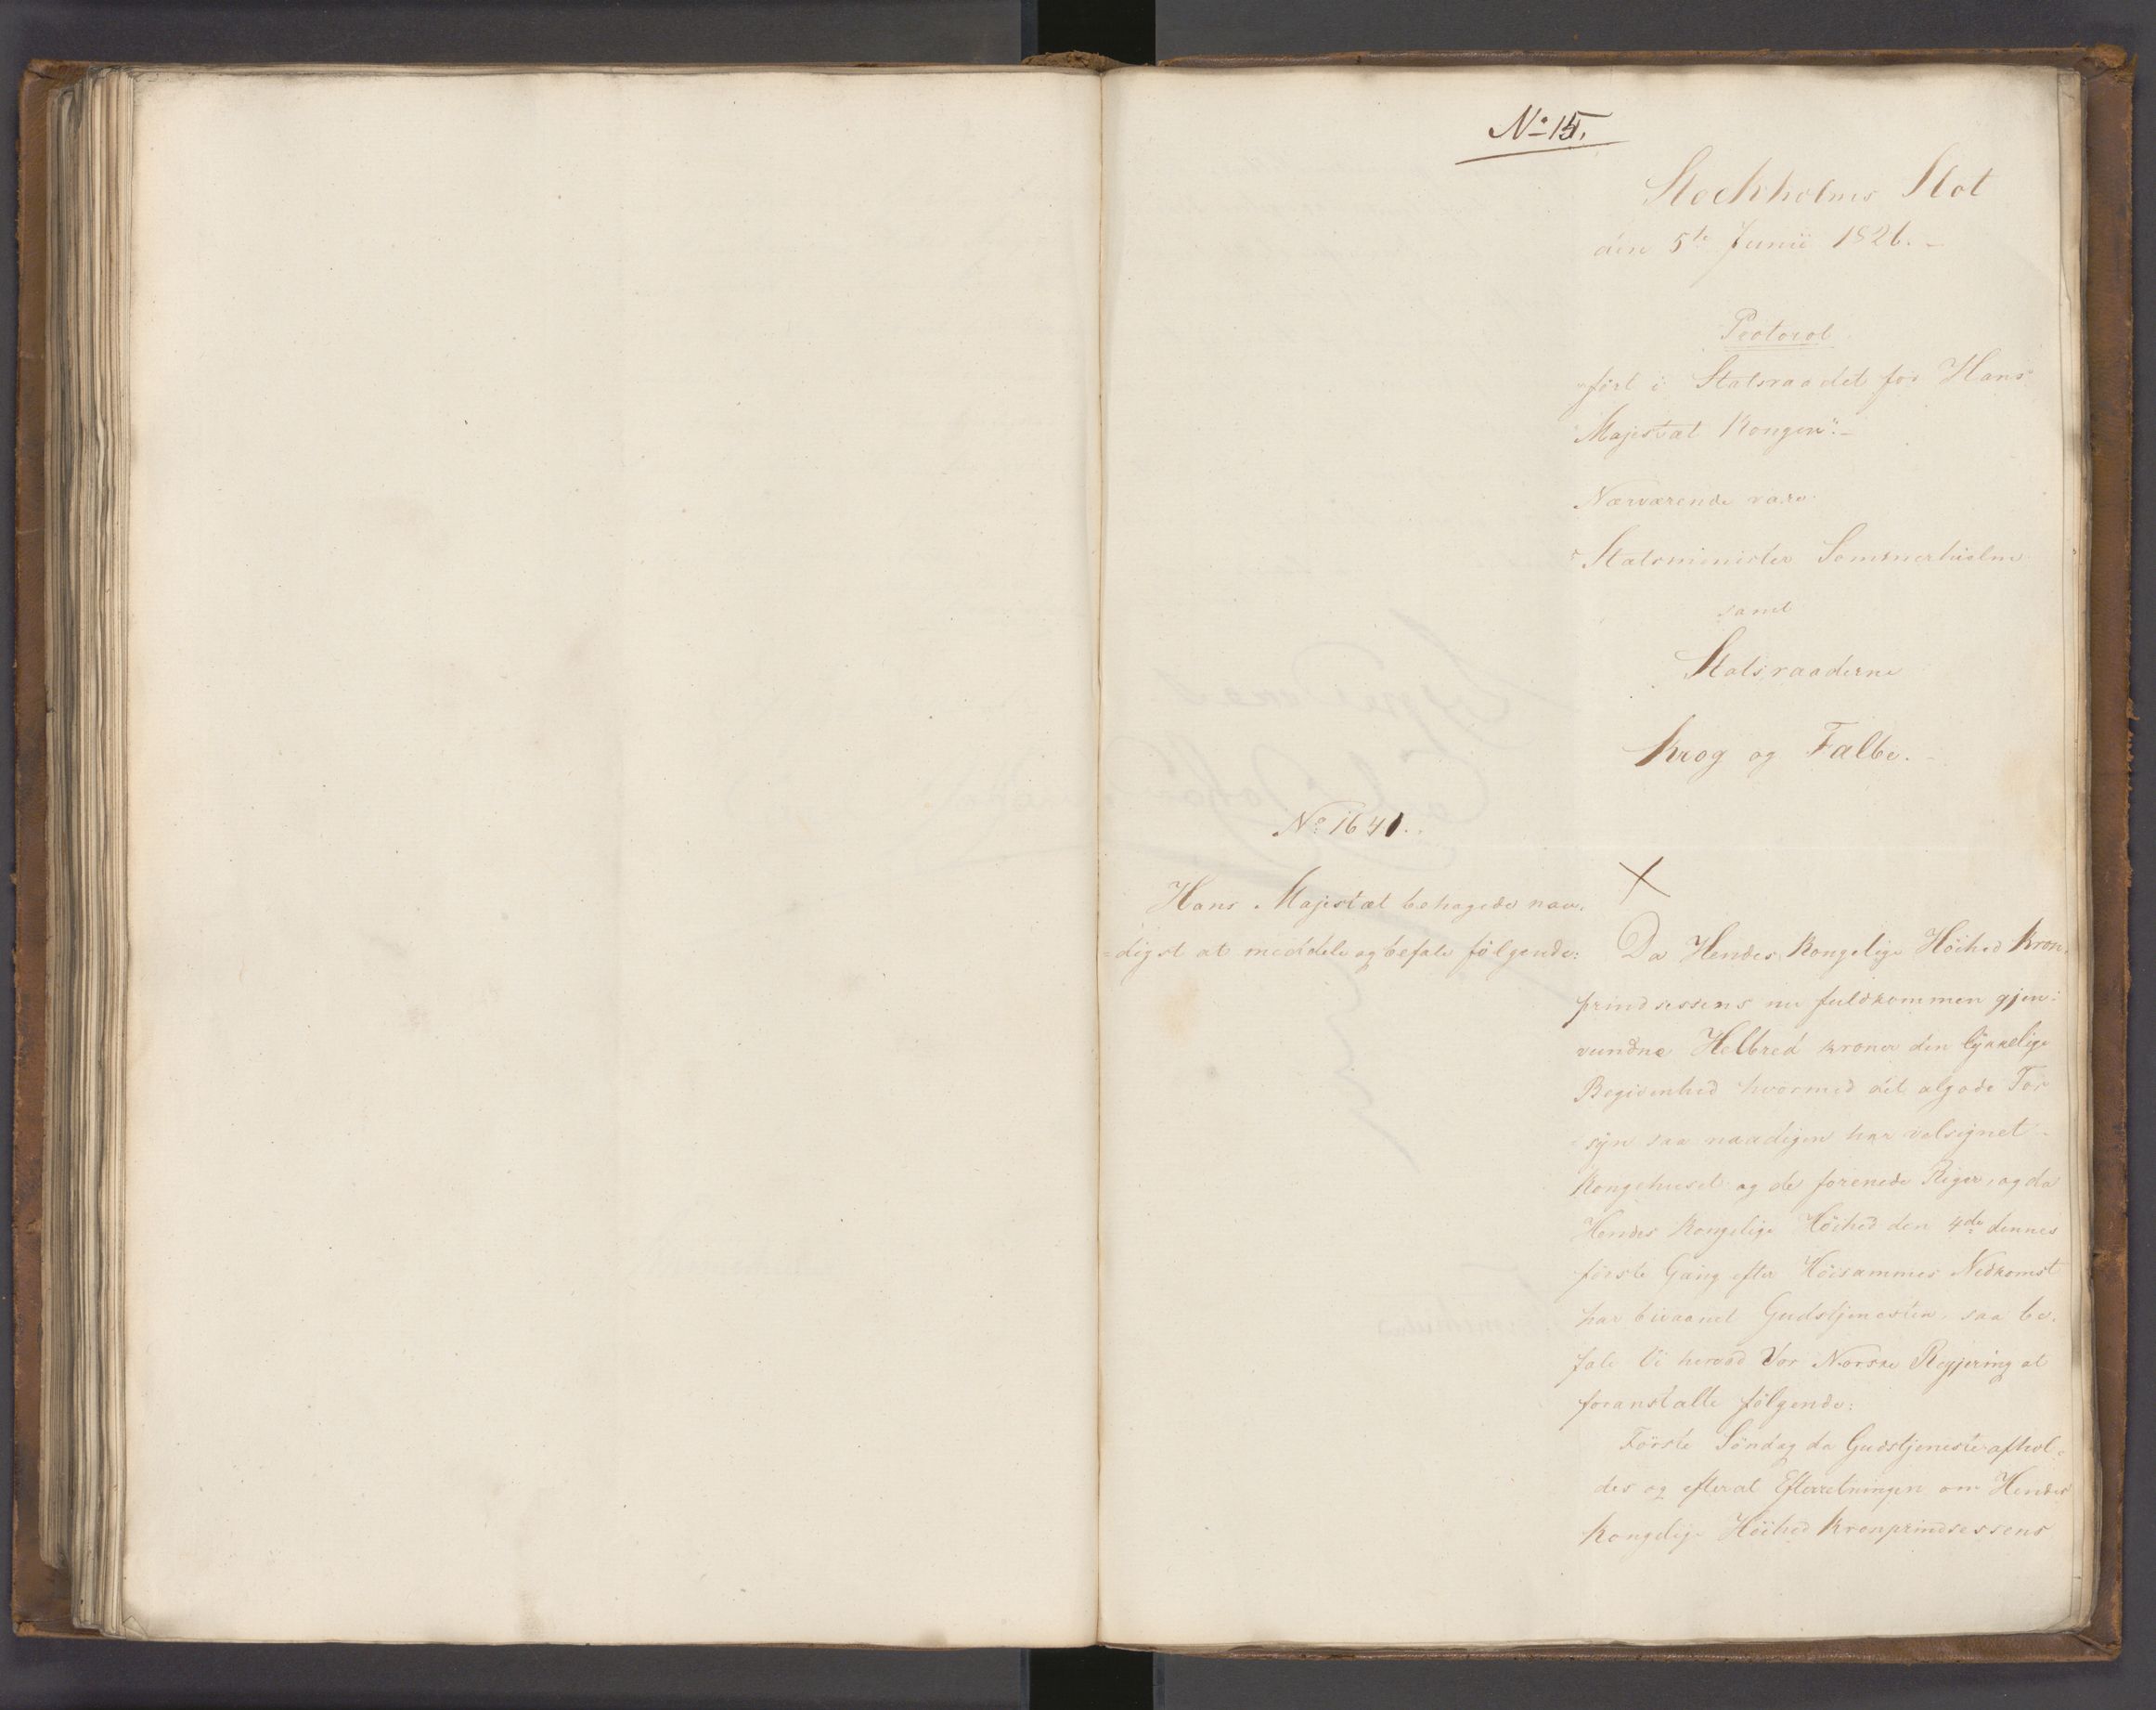 No 15.
Stockholms Slot
den 5te Junii 1826. -
Protocol
ført i Statsraadet for Hans
Majestæt Kongen. -
Nærværende vare
Statsminister Sommerhielm
samt
Statsraaderne
Krog og Falbe. -
No 1641.
Hans Majestæt behagede naa-
=digst at meddele og befale følgende:
Da Hendes Kongelige Høihed Kron-
prindsessens nu fuldkommen gjen-
vundne Helbred kroner den lykkelige
Begivenhed hvormed det algode For
=syn saa naadigen har velsignet
Kongehuset og de forenede Riger, og da
Hendes Kongelige Høihed den 4de dennes
første Gang efter Høisammes Nedkomst
har bivaanet Gudstjenesten, saa be-
fale Vi herved Vor Norske Regjering at
foranstalte følgende:
Første Søndag da Gudstjeneste afhol-
des og efterat Efterretningen om Hendes
Kongelige Høihed Kronprindsessens